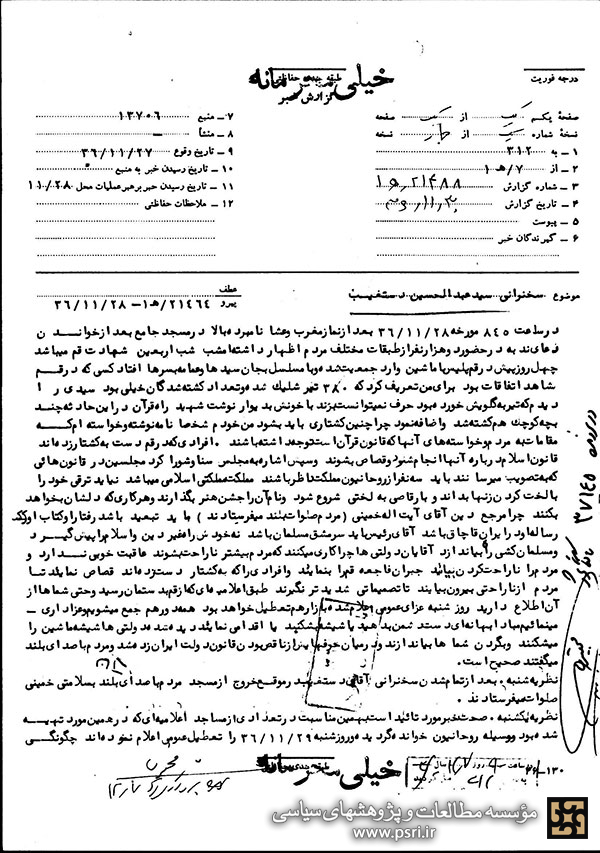 خیلی محرمانه
طبقه بندی حفاظتی
گزارش خبر
درجه فوریت
صفحهٔ یکم از یک صفحه
نسخهٔ شماره یک از چهار نسخه
۱ ـ به ۳۱۲
۲ ـ از ۷/هـ۱
۳ ـ شماره گزارش ۲۱۴۸۸
۴ ـ تاریخ گزارش
۵ ـ پیوست
۶ ـ گیرندگان خبر
۷ ـ منبع ۱۳۷۰۶
۸ ـ منشأ ـ
۹ ـ تاریخ وقوع ۳۶/۱۱/۲۷
۱۰ ـ تاریخ رسیدن خبر به منبع
۱۱ ـ تاریخ رسیدن خبر برهبر عملیات محل ۱۱/۲۸
۱۲ ـ ملاحظات حفاظتی
موضوع سخنرانی سیدعبدالحسین دستغیب
عطف
پیرو ۲۱۴۶۴/هـ۱ ـ ۳۶/۱۱/۲۸
درساعت ۸۴۵ مورخه ۳۶/۱۱/۲۸ بعد ازنماز مغرب وعشا نامبرده بالا در مسجد جامع بعد ازخواندن
دعای ندبه در حضور دو هزارنفر ازطبقات مختلف مردم اظهار داشته امشب شب اربعین شهدا قم میباشد
چهل روز پیش در قم پلیس با ماشین وارد جمعیت شده وبا مسلسل بجان سیدها وعمامه بسرها افتاد کسی که در قم
شاهد اتفاقات بود برای من تعریف کرد که ۳۸۰ تیر شلیک شد وتعداد کشته شدگان خیلی بود سیدی را
دیدم که تیر به گلویش خورده بود حرف نمیتوانست بزند با خونش بدیوار نوشت شهید راه قرآن در این حادثه چند
بچه کوچک هم کشته شد واضافه نمود چرا چنین کشتاری باید بشود من خودم شخصا نامه نوشته وخواسته ام که
مقامات به مردم وخواسته های آنها که قانون قرآن است توجه داشته باشند . افرادی که در قم دست به کشتار زده اند
قانون اسلام درباره آنها انجام شود وقصاص بشوند وسپس اشاره به مجلس سنا وشورا کرد مجلسین در قانون هائی
که تصویب میرسانند باید سه نفر از روحانیون مملکت ناظر باشند مملکت مملکتی اسلامی میباشد نباید ترقی خود را
با لخت کردن زنها بداند و با رقاصی به لختی شروع شود ونام آن را جشن هنر بگذارند وهر کاری که دلشان بخواهد
بکنند چرا مرجع دین آقای آیت اله خمینی ( مردم صلوات بلند میفرستادند ) باید تبعید باشد رفتار او کتاب او
رساله او در ایران قاچاق باشد آقای رئیس باید سرمشق مسلمان باشد نه خودش راه غیر دین واسلام را پیش گیرد
ومسلمان کشی راه بیاندازد آقایان دولتی ها چرا کاری میکنند که مردم بیشتر ناراحت بشوند عاقبت خوبی ندارد و
مردم را ناراحت کردن بیائید جبران فاجعه قم را بنمایند وافرادی را که به کشتار دست زده اند قصاص نمایند تا
مردم از ناراحتی بیرون بیایند تا تصمیماتی شدیدتر نگیرند طبق اعلامیه ای که از قم بدستمان رسید وحتی شماها از
آن اطلاع دارید روز شنبه عزای عمومی اعلام شده بازارهم تعطیل خواهد بود همه دور هم جمع میشویم وعزاداری ـ
مینمائیم مبادا بهانه ای دست دشمن بدهید یا شیشه بشکنید یا اقدامی نمایند دیده شده دولتی ها شیشه ماشین را
میشکنند وبگردن شما ها بیاندازند
میگفتند صحیح است .
نظریه شنبه . بعد از تمام شدن سخنرانی آقای دستغیب در موقع خروج از مسجد مردم با صدای بلند بسلامتی خمینی
صلوات میفرستادند .
نظریه یکشنبه . صحت خبر مورد تائید است بهمین مناسبت در تعدادی از مساجد اعلامیه ای که در همین مورد تهیه
شده بود وبوسیله روحانیون خوانده گردید وروز شنبه ۳۶/۱۱/۲۹ را تعطیل عمومی اعلام نموده اند چگونگی
خیلی محرمانه
مؤسسه مطالعات و پژوهشهای سیاسی
www.psri.ir